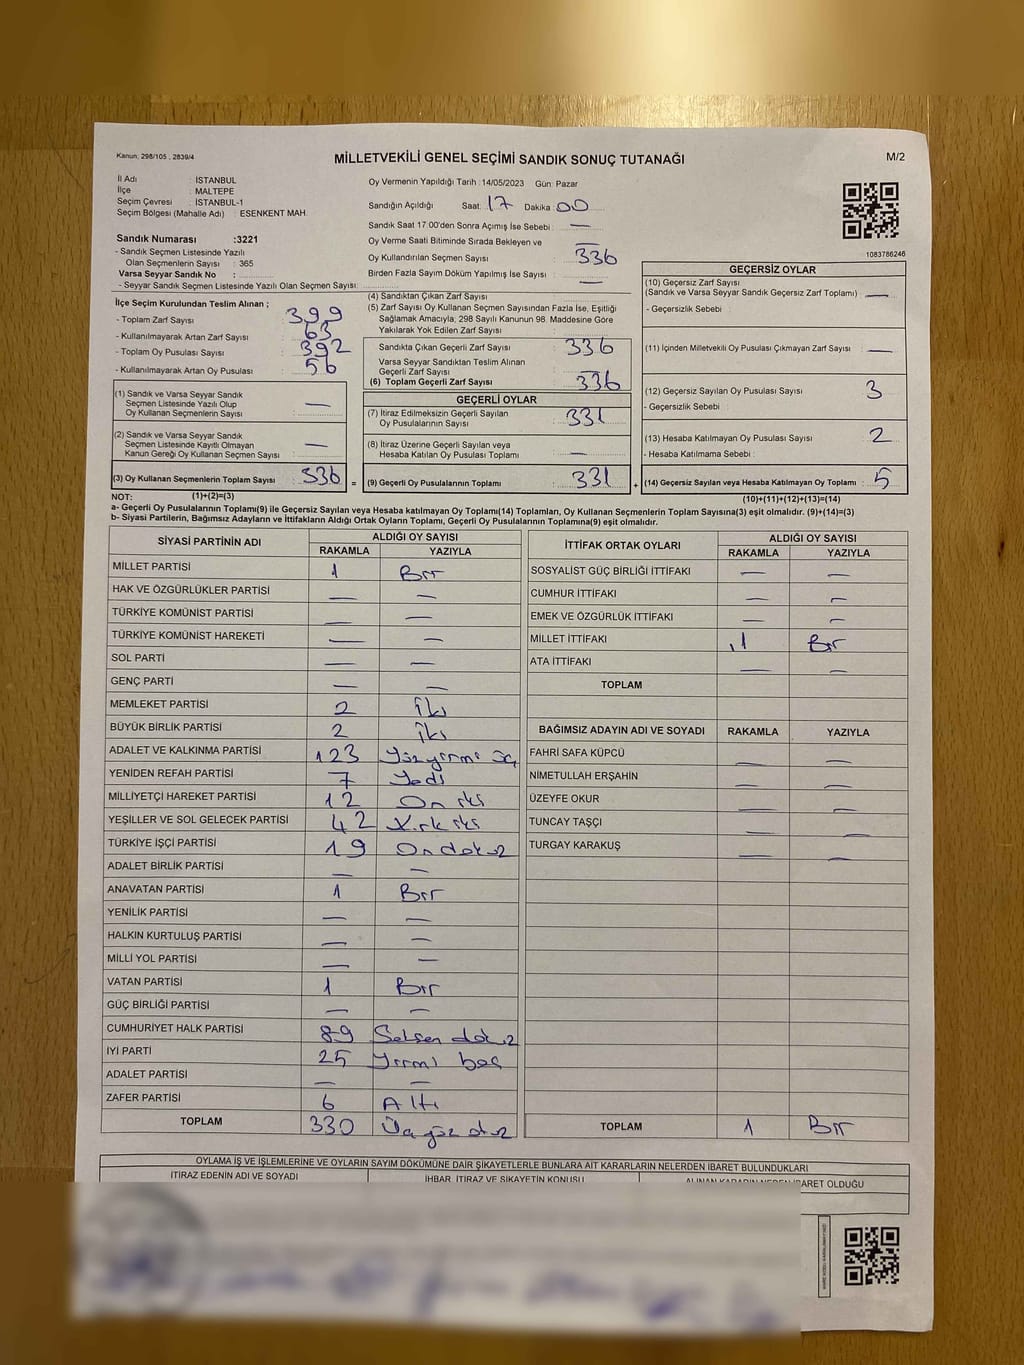 Kanun; 298/105 , 2839/4
MİLLETVEKİLİ GENEL SEÇİMİ SANDIK SONUÇ TUTANAĞI
M/2
İl Adı : İSTANBUL
İlçe : MALTEPE
Seçim Çevresi : İSTANBUL-1
Seçim Bölgesi (Mahalle Adı) : ESENKENT MAH.
Oy Vermenin Yapıldığı Tarih : 14/05/2023 Gün: Pazar
Sandığın Açıldığı Saat: 17 Dakika: 00
Sandık Saat 17:00'den Sonra Açımış İse Sebebi : —
Oy Verme Saati Bitiminde Sırada Bekleyen ve —
Oy Kullandırılan Seçmen Sayısı : 336
Birden Fazla Sayım Döküm Yapılmış İse Sayısı : —
1083786246
Sandık Numarası :3221
- Sandık Seçmen Listesinde Yazılı
Olan Seçmenlerin Sayısı : 365
Varsa Seyyar Sandık No :
- Seyyar Sandık Seçmen Listesinde Yazılı Olan Seçmen Sayısı:
İlçe Seçim Kurulundan Teslim Alınan ;
- Toplam Zarf Sayısı : 399
- Kullanılmayarak Artan Zarf Sayısı : 63
- Toplam Oy Pusulası Sayısı : 392
- Kullanılmayarak Artan Oy Pusulası : 56
(1) Sandık ve Varsa Seyyar Sandık
Seçmen Listesinde Yazılı Olup
Oy Kullanan Seçmenlerin Sayısı : —
(2) Sandık ve Varsa Seyyar Sandık
Seçmen Listesinde Kayıtlı Olmayan
Kanun Gereği Oy Kullanan Seçmen Sayısı : —
(3) Oy Kullanan Seçmenlerin Toplam Sayısı : 336 =
(4) Sandıktan Çıkan Zarf Sayısı :
(5) Zarf Sayısı Oy Kullanan Seçmen Sayısından Fazla İse, Eşitliği
Sağlamak Amacıyla; 298 Sayılı Kanunun 98. Maddesine Göre
Yakılarak Yok Edilen Zarf Sayısı :
Sandıkta Çıkan Geçerli Zarf Sayısı : 336
Varsa Seyyar Sandıktan Teslim Alınan
Geçerli Zarf Sayısı : —
(6) Toplam Geçerli Zarf Sayısı : 336
GEÇERLİ OYLAR
(7) İtiraz Edilmeksizin Geçerli Sayılan
Oy Pusulalarının Sayısı : 331
(8) İtiraz Üzerine Geçerli Sayılan veya
Hesaba Katılan Oy Pusulası Toplamı : —
(9) Geçerli Oy Pusulalarının Toplamı : 331 +
GEÇERSİZ OYLAR
(10) Geçersiz Zarf Sayısı
(Sandık ve Varsa Seyyar Sandık Geçersiz Zarf Toplamı) : —
- Geçersizlik Sebebi :
(11) İçinden Milletvekili Oy Pusulası Çıkmayan Zarf Sayısı : —
(12) Geçersiz Sayılan Oy Pusulası Sayısı : 3
- Geçersizlik Sebebi :
(13) Hesaba Katılmayan Oy Pusulası Sayısı : 2
- Hesaba Katılmama Sebebi :
(14) Geçersiz Sayılan veya Hesaba Katılmayan Oy Toplamı : 5
NOT: (1)+(2)=(3)
(10)+(11)+(12)+(13)=(14)
a- Geçerli Oy Pusulalarının Toplamı(9) ile Geçersiz Sayılan veya Hesaba katılmayan Oy Toplamı(14) Toplamları, Oy Kullanan Seçmenlerin Toplam Sayısına(3) eşit olmalıdır. (9)+(14)=(3)
b- Siyasi Partilerin, Bağımsız Adayların ve İttifakların Aldığı Ortak Oyların Toplamı, Geçerli Oy Pusulalarının Toplamına(9) eşit olmalıdır.
SİYASİ PARTİNİN ADI ALDIĞI OY SAYISI
RAKAMLA YAZIYLA
MİLLET PARTİSİ 1 Bir
HAK VE ÖZGÜRLÜKLER PARTİSİ — —
TÜRKİYE KOMÜNİST PARTİSİ — —
TÜRKİYE KOMÜNİST HAREKETİ — —
SOL PARTİ — —
GENÇ PARTİ — —
MEMLEKET PARTİSİ 2 İki
BÜYÜK BİRLİK PARTİSİ 2 İki
ADALET VE KALKINMA PARTİSİ 123 Yüzyirmi üç
YENİDEN REFAH PARTİSİ 7 Yedi
MİLLİYETÇİ HAREKET PARTİSİ 12 On iki
YEŞİLLER VE SOL GELECEK PARTİSİ 42 Kırk iki
TÜRKİYE İŞÇİ PARTİSİ 19 Ondokuz
ADALET BİRLİK PARTİSİ — —
ANAVATAN PARTİSİ 1 Bir
YENİLİK PARTİSİ — —
HALKIN KURTULUŞ PARTİSİ — —
MİLLİ YOL PARTİSİ — —
VATAN PARTİSİ 1 Bir
GÜÇ BİRLİĞİ PARTİSİ — —
CUMHURİYET HALK PARTİSİ 89 Seksen dokuz
İYİ PARTİ 25 Yirmi beş
ADALET PARTİSİ — —
ZAFER PARTİSİ 6 Altı
TOPLAM 330 Üçyüz otuz
İTTİFAK ORTAK OYLARI ALDIĞI OY SAYISI
RAKAMLA YAZIYLA
SOSYALİST GÜÇ BİRLİĞİ İTTİFAKI — —
CUMHUR İTTİFAKI — —
EMEK VE ÖZGÜRLÜK İTTİFAKI — —
MİLLET İTTİFAKI 1 Bir
ATA İTTİFAKI — —
TOPLAM
BAĞIMSIZ ADAYIN ADI VE SOYADI RAKAMLA YAZIYLA
FAHRİ SAFA KÜPCÜ — —
NİMETULLAH ERŞAHİN — —
ÜZEYFE OKUR — —
TUNCAY TAŞÇI — —
TURGAY KARAKUŞ — —
TOPLAM 1 Bir
OYLAMA İŞ VE İŞLEMLERİNE VE OYLARIN SAYIM DÖKÜMÜNE DAİR ŞİKAYETLERLE BUNLARA AİT KARARLARIN NELERDEN İBARET BULUNDUKLARI
İTİRAZ EDENİN ADI VE SOYADI İHBAR, İTİRAZ VE ŞİKAYETİN KONUSU ALINAN KARARIN NEDEN İBARET OLDUĞU